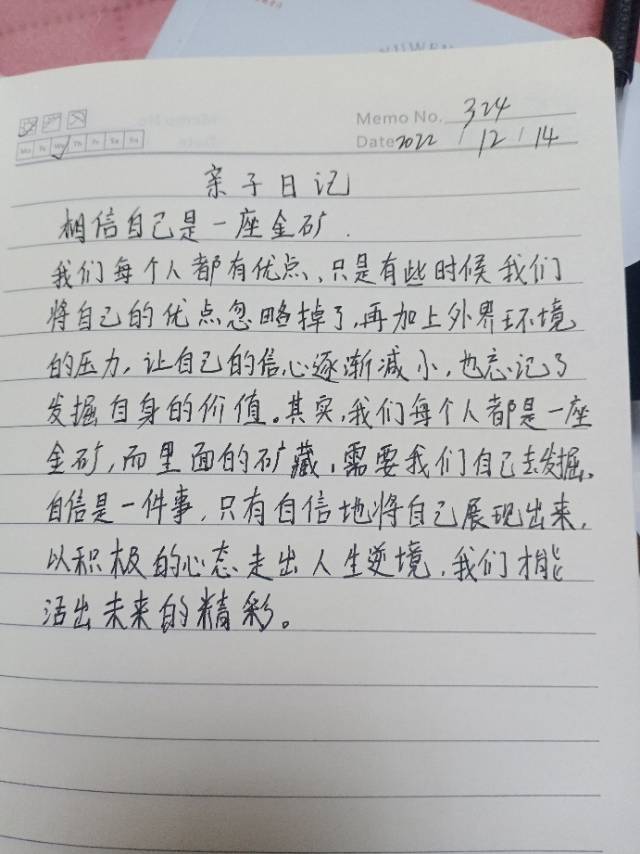 NUWEN
Memo No. 324
Mo Tu We Th Fr Sa Su
Date 2022 / 12 / 14
亲子日记
相信自己是一座金矿.
我们每个人都有优点、只是有些时候我们
将自己的优点忽略掉了,再加上外界环境
的压力,让自己的信心逐渐减小,也忘记了
发掘自身的价值。其实,我们每个人都是一座
金矿,而里面的矿藏,需要我们自己去发掘。
自信是一件事,只有自信地将自己展现出来,
以积极的心态走出人生逆境,我们才能
活出未来的精彩。